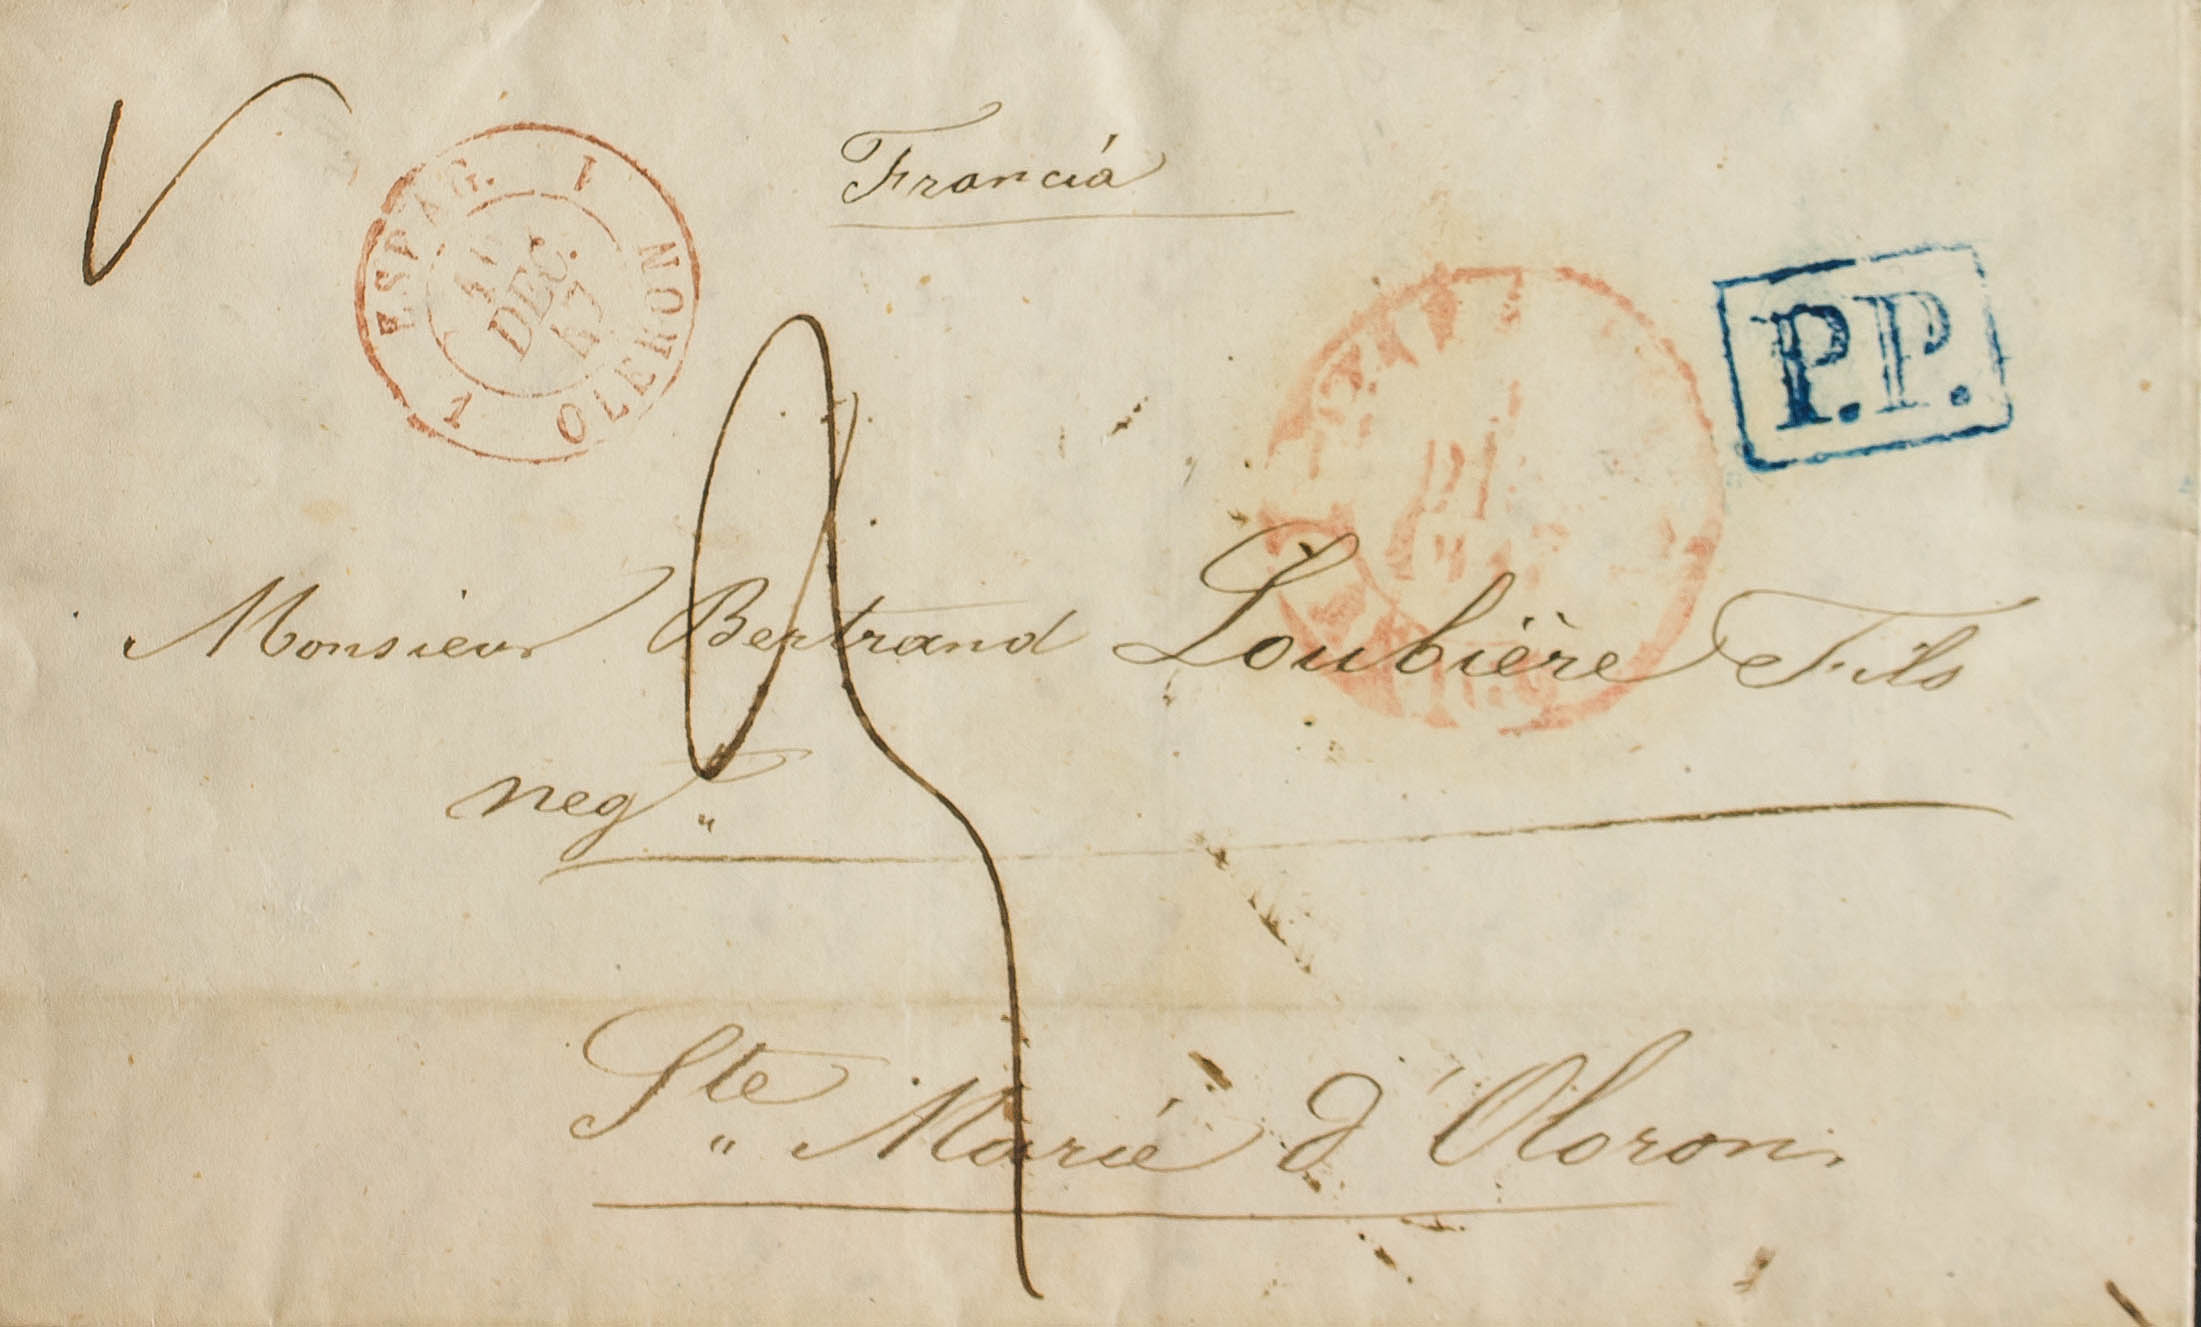 Francia
1 ESPAG. 1 OLERON
DEC.
47
P.P.
Monsieur Bertrand Loubière Fils
negt
Ste Marie d'Oloron.